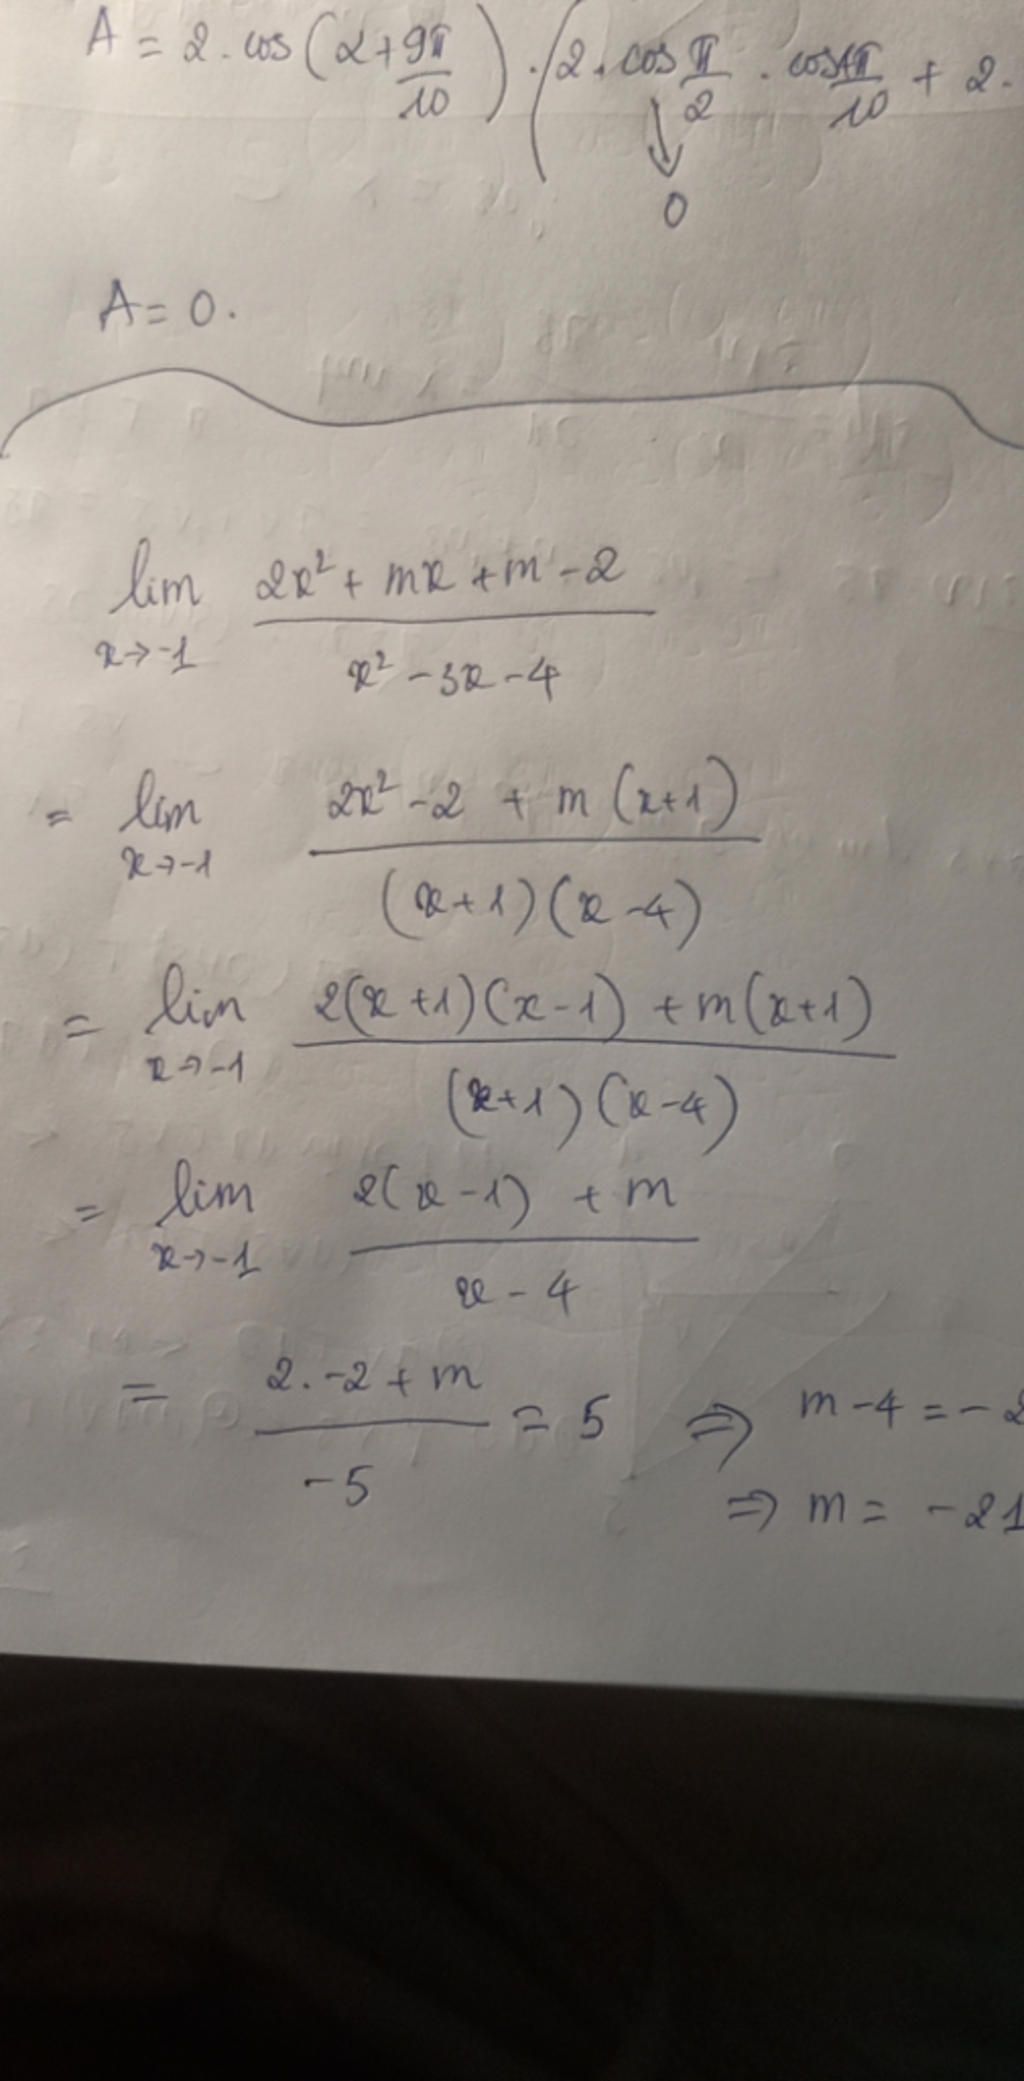 A = 2 . cos (α + 9π/10) . (2 . cos π/2 . cos 4π/10 + 2 .
0
A = 0.
lim x→-1 (2x² + mx + m - 2)/(x² - 3x - 4)
= lim x→-1 (2x² - 2 + m (x+1))/((x+1)(x-4))
= lim x→-1 (2(x+1)(x-1) + m(x+1))/((x+1)(x-4))
= lim x→-1 (2(x-1) + m)/(x-4)
= (2.-2 + m)/(-5) = 5 ⇒ m - 4 = -2
⇒ m = -21